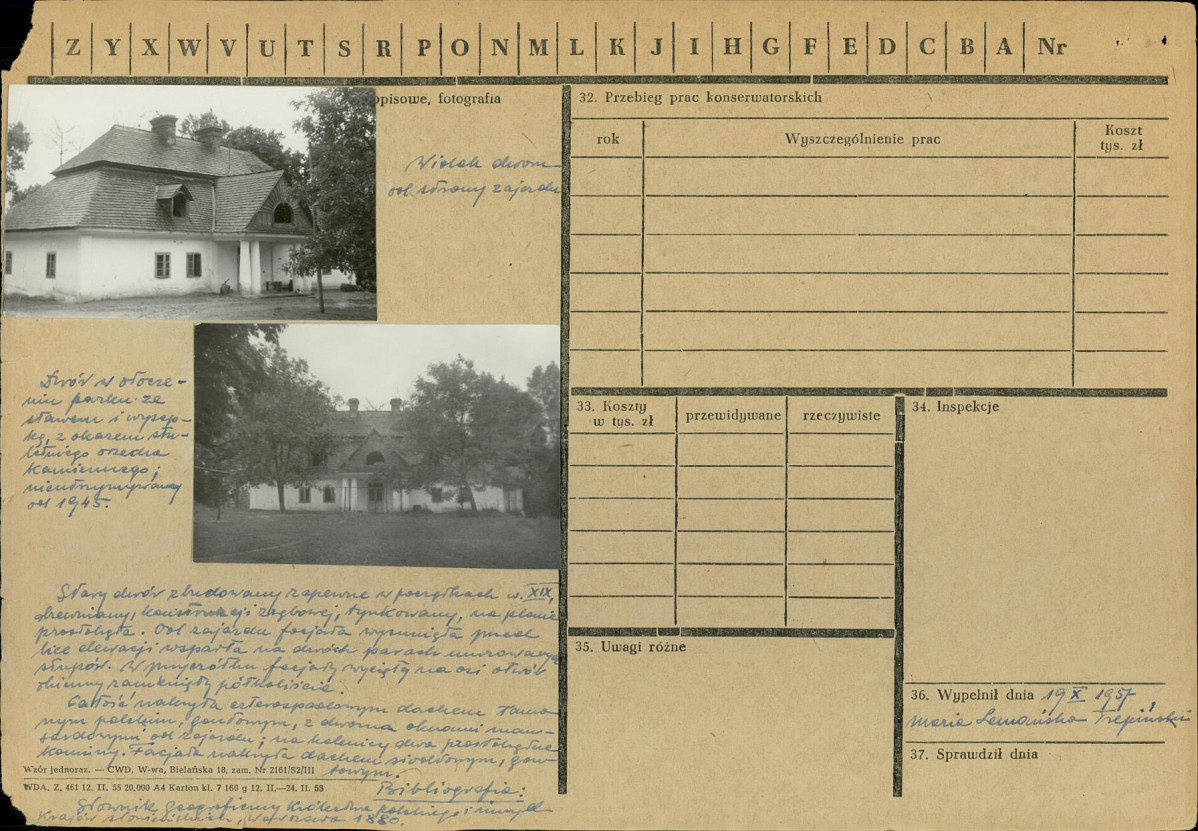 Z Y X W V U T S R P O N M L K J I H G F E D C B A Nr
opisowe, fotografia
Widok dworu
od strony zajazdu
Dwór w otocze-
niu parku ze
stawem i wysep-
ką, z okazem stu-
letniego orzecha
kamiennego;
nieutrzymywany
od 1945.
Stary dwór zbudowany zapewne w początkach w. XIX,
drewniany, konstrukcji zrębowej, tynkowany, na planie
prostokąta. Od zajazdu facjata wysunięta przed
lice elewacji wsparta na dwóch parach murowanych
słupów. W przyczółku facjaty wycięty na osi otwór
okienny zamknięty półkoliście.
Całość nakryta czterospadowym dachem łama-
nym polskim, gontowym, z dwoma oknami man-
sardowymi od zajazdu; na kalenicy dwa prostokątne
kominy. Facjata nakryta dachem siodłowym, gon-
towym.
Wzór jednoraz. — CWD, W-wa, Bielańska 18, zam. Nr 2161/S2/III
WDA. Z. 461 12. II. 55 20.000 A4 Karton kl. 7 160 g 12. II.—24. II. 55
Bibliografia:
Słownik geograficzny Królestwa polskiego i innych
Krajów słowiańskich, Warszawa 1880.
32. Przebieg prac konserwatorskich
rok Wyszczególnienie prac Koszt
tys. zł
33. Koszty
w tys. zł przewidywane rzeczywiste
34. Inspekcje
35. Uwagi różne
36. Wypełnił dnia 19 X 1957
Maria Lemańska Trepiński
37. Sprawdził dnia